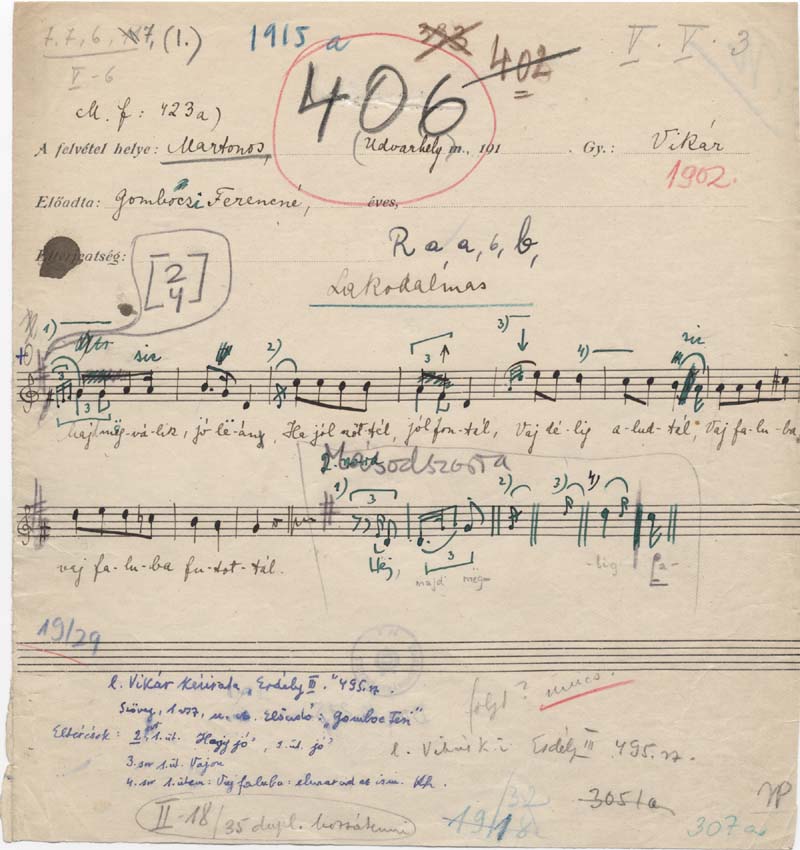 7. 7, 6, 7, (1.) 1915 a 402 V. V. 3
V-6
406
M. f: 423a)
A felvétel helye: Martonos, (Udvarhely) m., 191 . Gy.: Vikár
1902.
Előadta: Gombócsi Ferencné, éves,
Elterjedtség:
R a, a, 6, b,
[2/4]
Lakodalmas
1) sic 2) 3) 4) sic
Majd meg-vá-lik, jó le-ány, Ha jól nőt-tél, jól fon-tál, Vaj dé-lig a-lud-tál, Vaj fa-lu-ba,
Másodszorra
1) 2) 3) 4)
vaj fa-lu-ba fu-tot-tál.
Hej, majd meg- -lig fa-
19/29
l. Vikár kézirata, "Erdély III." 495. sz.
Szöveg, 1 vsz, u. az. Előadó: "Gombóc Teri"
Eltérések: 1. üt. Hagyj jó 2. üt. jó
3. sor 1. üt. Vajon
4. sor 1. ütem: Vaj faluba: elmarad az ism.
folyt? nincs.
l. Vikár k. Erdély III 495. sz.
II-18/35 dupl. hozzátenni
/32
1918
3051a
307a